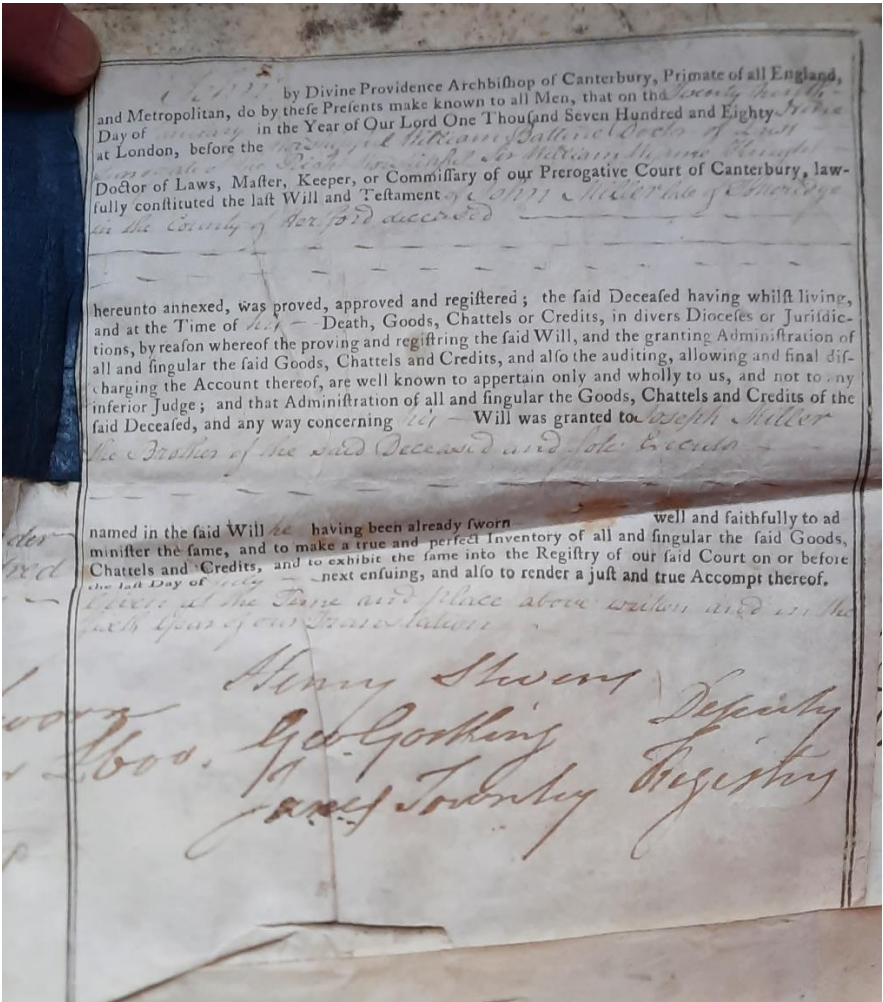 John by Divine Providence Archbiſhop of Canterbury, Primate of all England,
and Metropolitan, do by theſe Preſents make known to all Men, that on the Twenty
Day of January in the Year of Our Lord One Thouſand Seven Hundred and Eighty Nine
at London, before the Worshipful William Doctor of
the Right Sir William Wynne Knight
Doctor of Laws, Maſter, Keeper, or Commiſſary of our Prerogative Court of Canterbury, law-
fully conſtituted the laſt Will and Teſtament of John Miller late of
in the County of Hertford deceased
hereunto annexed, was proved, approved and regiſtered; the ſaid Deceaſed having whilſt living,
and at the Time of his Death, Goods, Chattels or Credits, in divers Dioceſes or Juriſdic-
tions, by reaſon whereof the proving and regiſtring the ſaid Will, and the granting Adminiſtration of
all and ſingular the ſaid Goods, Chattels and Credits, and alſo the auditing, allowing and final diſ-
charging the Account thereof, are well known to appertain only and wholly to us, and not to any
inferior Judge; and that Adminiſtration of all and ſingular the Goods, Chattels and Credits of the
ſaid Deceaſed, and any way concerning his Will was granted to Joseph Miller
the Brother of the said Deceased and sole Executor
named in the ſaid Will he having been already ſworn well and faithfully to ad
miniſter the ſame, and to make a true and perfect Inventory of all and ſingular the ſaid Goods,
Chattels and Credits, and to exhibit the ſame into the Regiſtry of our ſaid Court on or before
the laſt Day of July next enſuing, and alſo to render a juſt and true Accompt thereof.
Given at the Time and place above written and in the
sixth Year of our Translation
Henry Stevens
Geo Gostling Deputy
James Townley Registers
sworn
£600.